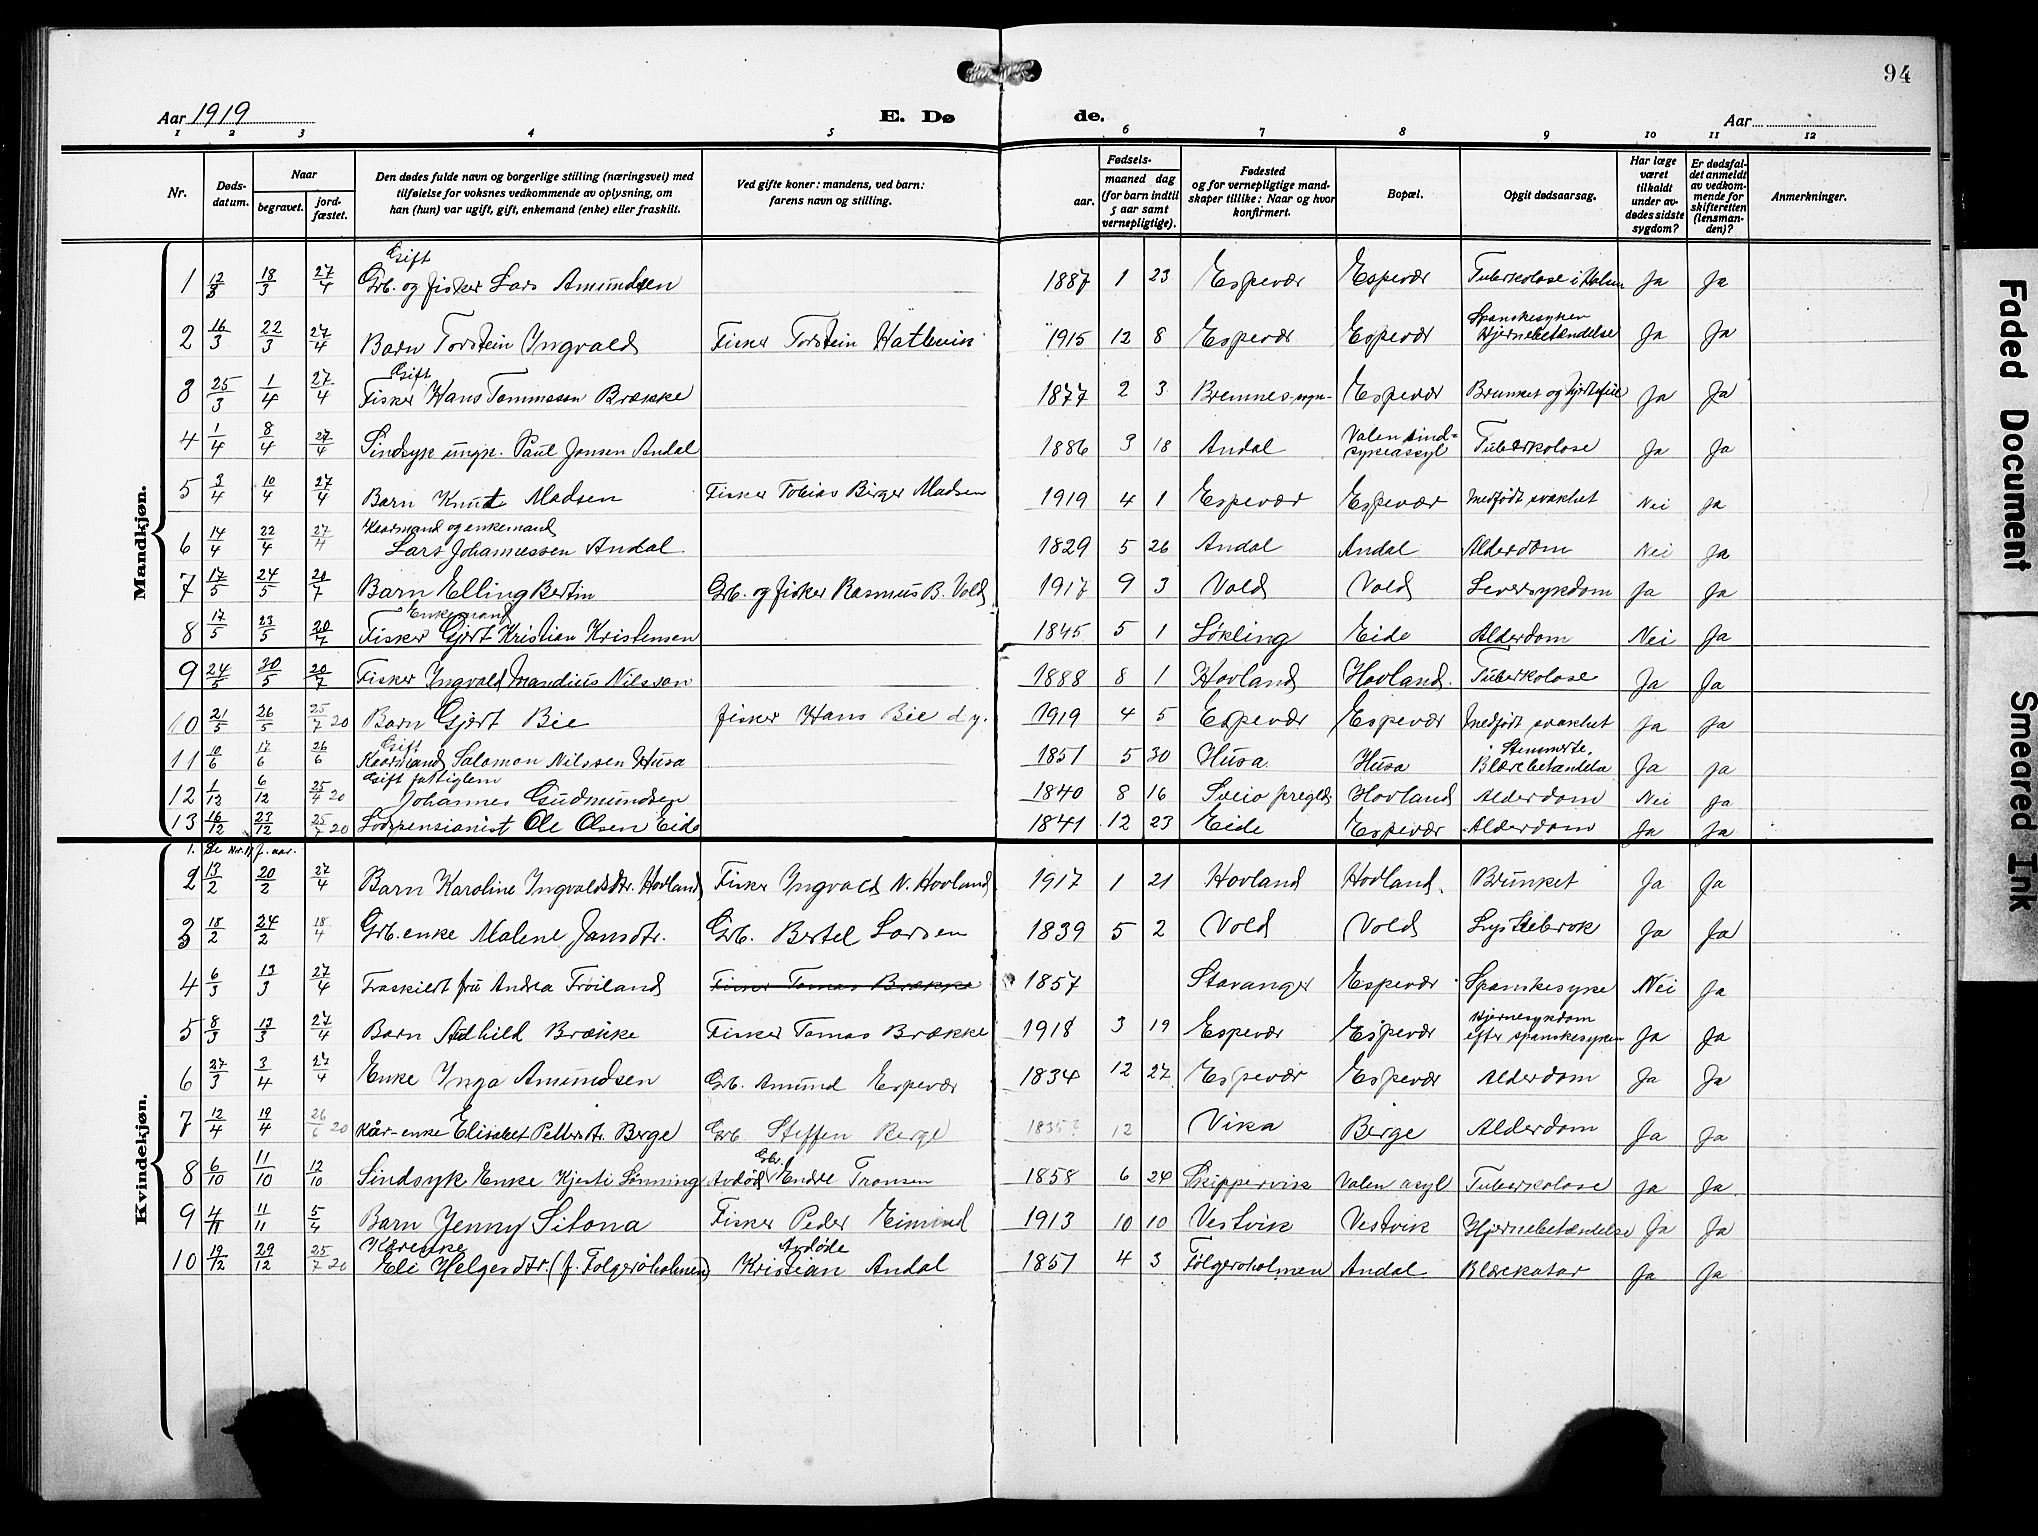 94
Aar 1919
E. Dø
de.
Aar
1 2 3 4 5 6 7 8 9 10 11 12
Nr. Døds-datum. Naar begravet. jord-fæstet. Den dødes fulde navn og borgerlige stilling (næringsvei) med tilføielse for voksnes vedkommende av oplysning, om han (hun) var ugift, gift, enkemand (enke) eller fraskilt. Ved gifte koner: mandens, ved barn: farens navn og stilling. Fødsels- aar. maaned dag (for barn indtil 5 aar samt vernepligtige). Fødested og for vernepligtige mand-skaper tillike: Naar og hvor konfirmert. Bopæl. Opgit dødsaarsag. Har læge været tilkaldt under av-dødes sidste sygdom? Er dødsfal-det anmeldt av vedkom-mende for skifteretten (lensman-den)? Anmerkninger.
Mandkjøn.
1 12/3 18/3 27/4 Gift Grb. og fisker Lars Amundsen 1887 1 23 Espevær Espevær Tuberkolose i Ja Ja
2 16/3 22/3 27/4 Barn Torstein Ingvald Fisker Torstein 1915 12 8 Espevær Espevær Spanskesyken Hjernebetændelse Ja Ja
3 25/3 1/4 27/4 Gift Fisker Hans Tommesen Brække 1877 2 3 Bremnes sogn Espevær Brunket og hjertefeil Ja Ja
4 1/4 8/4 27/4 Sindsyk ungk. Paul Jansen Andal 1886 3 18 Andal Valen sind=sykeassyl Tuberkolose Ja Ja
5 3/4 10/4 27/4 Barn Knut Madsen Fisker Tobias Birger Madsen 1919 4 1 Espevær Espevær Medfødt svakhet Nei Ja
6 14/4 22/4 27/4 Kaarmand og enkemand Lars Johannessen Andal 1829 5 26 Andal Andal Alderdom Nei Ja
7 17/5 24/5 20/7 Barn Elling Bertin Grb. og fisker Rasmus B. Vold 1917 9 3 Vold Vold Leversykdom Ja Ja
8 17/5 23/5 20/7 Enkemand Fisker Gjert Kristian Kristensen 1845 5 1 Løkling Eide Alderdom Nei Ja
9 24/5 30/5 20/7 Fisker Ingvald Mandius Nilsson 1888 8 1 Hovland Hovland. Tuberkolose Ja Ja
10 21/5 26/5 25/7 20 Barn Gjert Bie fisker Hans Bie d.y. 1919 4 5 Espevær Espevær Medfødt svakhet Ja Ja
11 10/6 17/6 26/6 Gift Kaarmand Salomon Nilssen Husa 1851 5 30 Husa Husa Blærebetændelse Ja Ja
12 1/12 6/12 25/4 20 Gift fattiglem Johannes Gudmundsen 1840 8 16 Sveio pregld Hovland Alderdom Nei Ja
13 16/12 23/12 25/7 20 Lodspensianist Ole Olsen Eide 1841 12 23 Eide Espevær Alderdom Ja Ja
Kvindekjøn.
1. Se Nr. 17 f. aar.
2 13/2 20/2 27/4 Barn Karoline Ingvaldsdtr. Hovland Fisker Ingvald N. Hovland 1917 1 21 Hovland Hovland. Brunket Ja Ja
3 18/2 24/2 18/4 Grb. enke Malene Jansdtr. Grb. Bertel Larsen 1839 5 2 Vold Vold Lyskebrok Ja Ja
4 6/3 13/3 27/4 Fraskildt fru Andrea Frøiland Fisker Tomas Brække 1857 Stavanger Espevær Spanskesyke Nei Ja
5 8/3 13/3 27/4 Barn Brække Fisker Tomas Brække 1918 3 19 Espevær Espevær Hjernesykdom efter spanskesyken Ja Ja
6 27/3 3/4 27/4 Enke Inga Amundsen Grb. Amund Espevær 1834 12 27 Espevær Espevær Alderdom Ja Ja
7 12/4 19/4 26/6 20 Kår-enke Elisabet Pettersdtr. Berge Grb. Steffen Berge 1835? 12 Vika Berge Alderdom Ja Ja
8 6/10 11/10 12/10 Sindsyk Enke Kjersti Lønning Avdød Grb. Endre Tronsen 1858 6 24 Skippervik Valen asyl Tuberkolose Ja Ja
9 4/11 11/11 5/4 Barn Jenny Silona Fisker Peder Eimind 1913 10 10 Vestvik Vestvik Hjernebetændelse Ja Ja
10 19/12 29/12 25/7 20 Kårenke Eli Helgesdtr. (f. Folgerøholmen) Avdøde Kristian Andal 1851 4 3 Følgerøholmen Andal Blærekatar Ja Ja
Faded Document
Smeared Ink